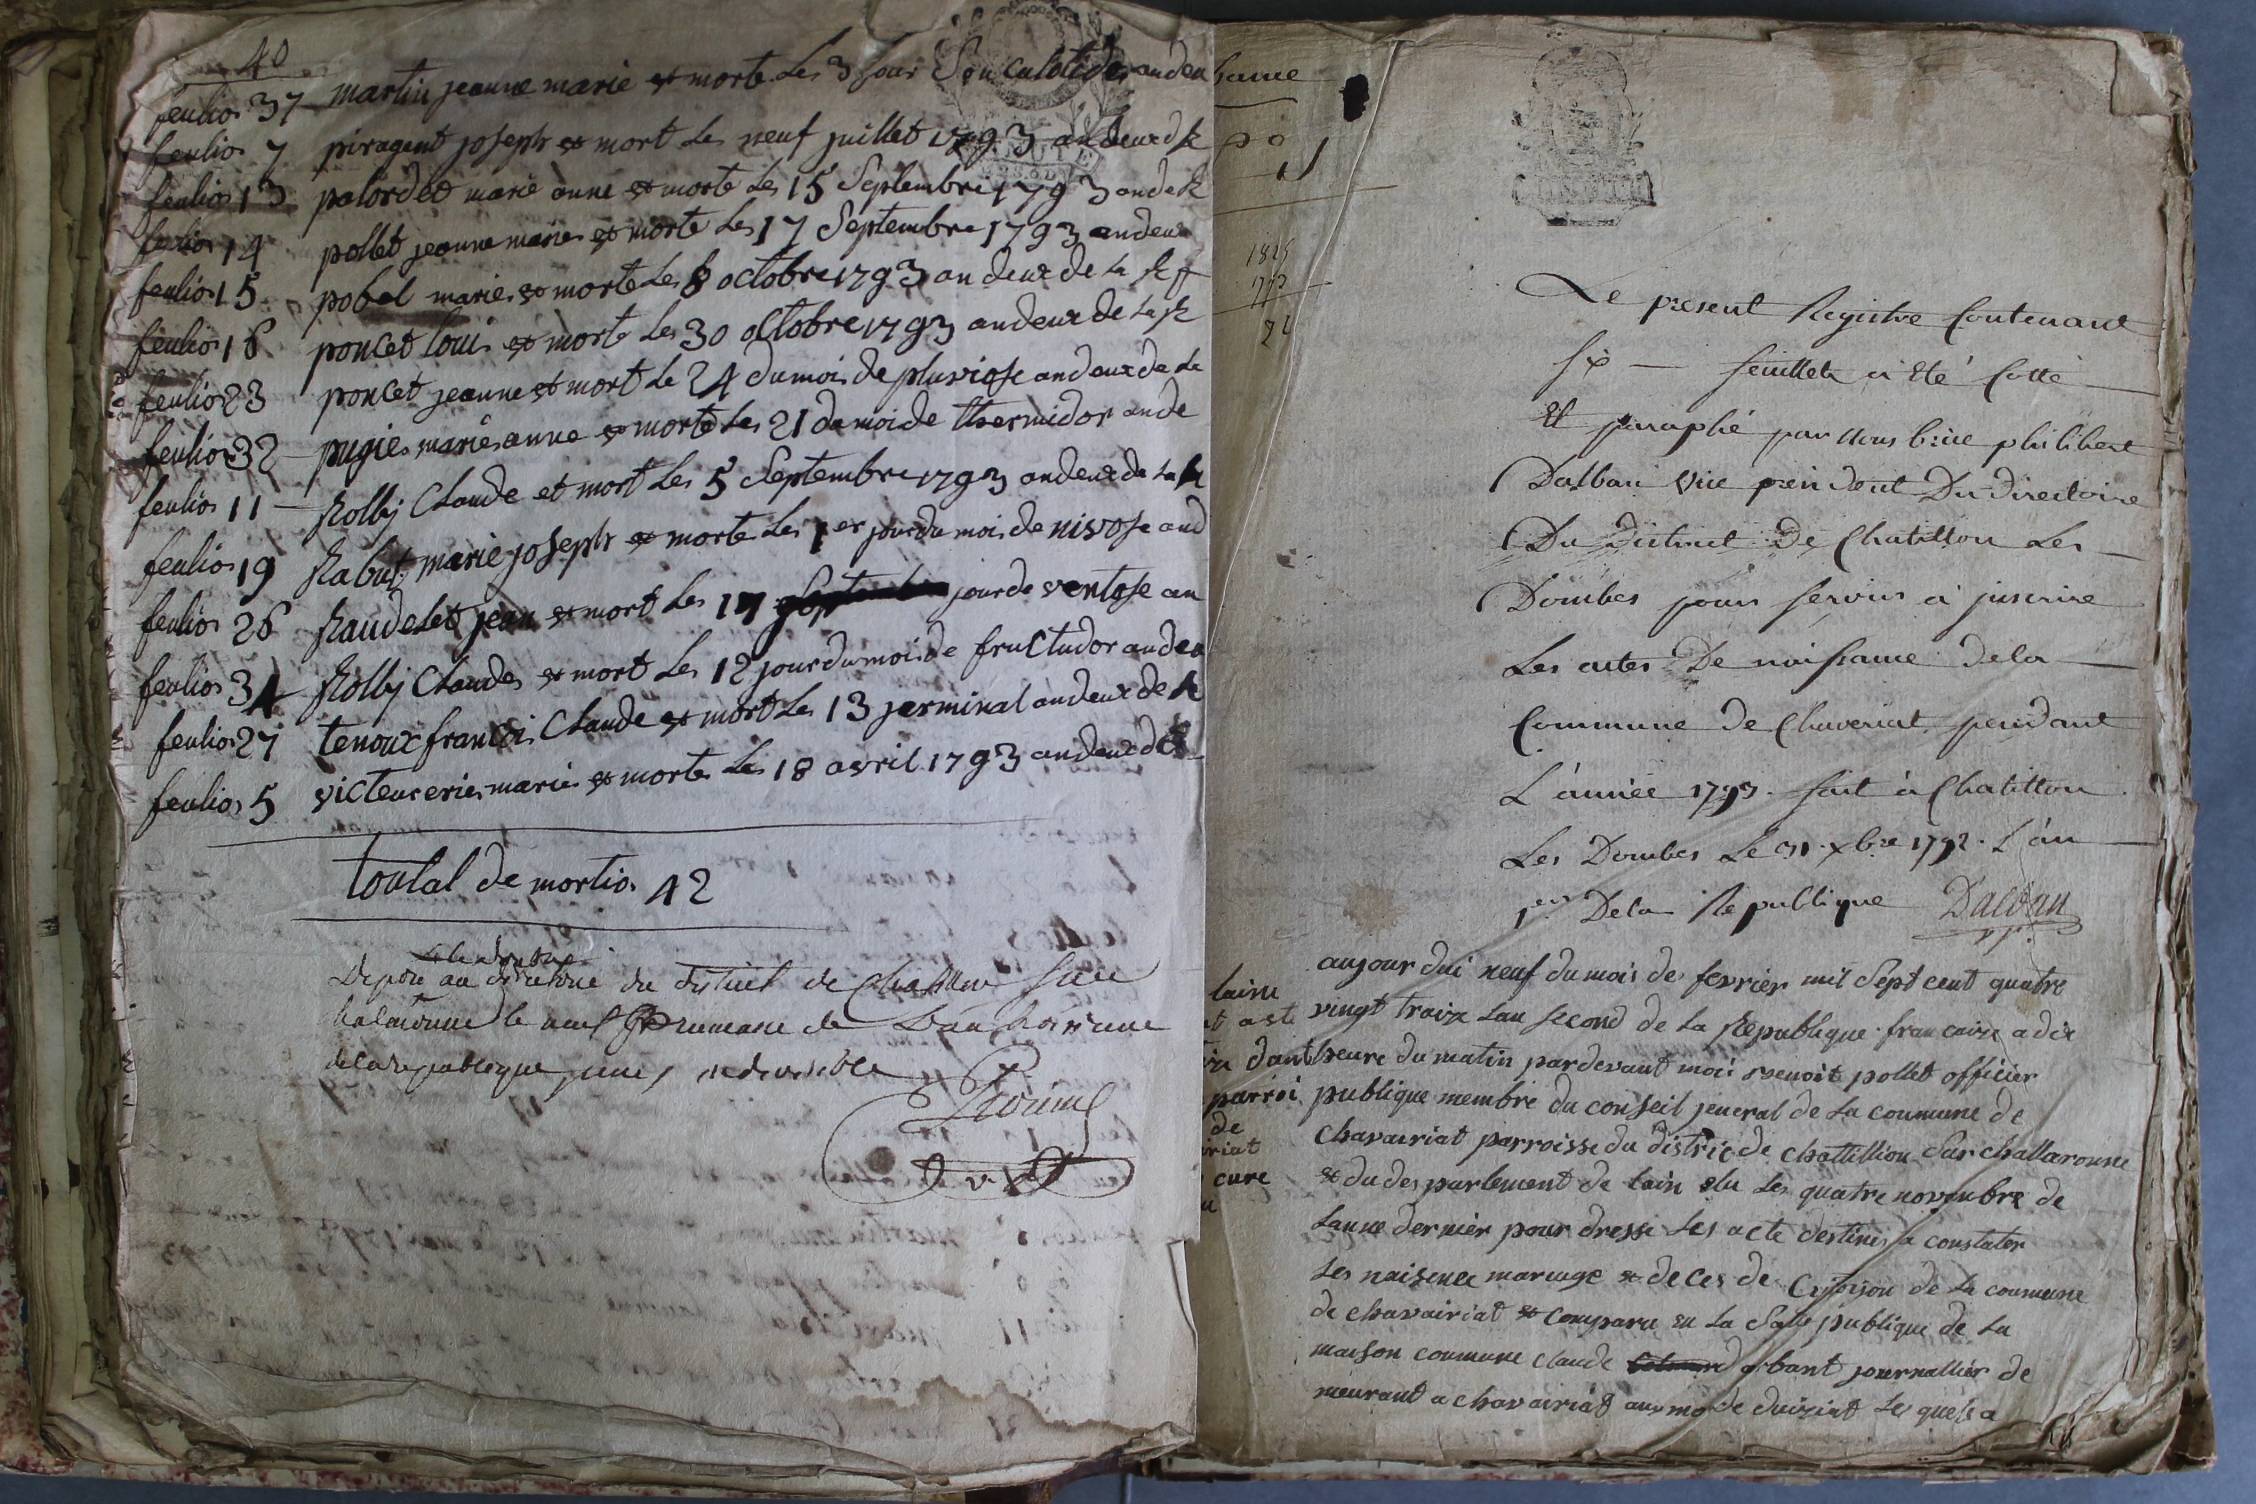 40
feulios 37 martin jeanne marie et morte les 3 jour Sanculotides an deu
feulios 7 piragent joseph et mort les neuf juillet 1793 an deux d R
feulios 13 palordet marie anne et morte les 15 Septembre 1793 an de R
feulios 14 pollet jeanne maries et morte les 17 Septembre 1793 an deux
feulios 15 pobel maries et morte les 8 octobre 1793 an deux de la R f
feulios 16 poncet louis et morte les 30 octobre 1793 an deux de la R
feulios 23 poncet jeanne et mort le 24 du mois de pluviose an deux de la
feulios 32 pugies maries anne et morte les 21 du mois de thermidor an de
feulios 11 Rolly Claude et mort les 5 Septembre 1793 an deux de la R
feulios 19 Rabut marie joseph et morte les 1er jour du mois de nivose an d
feulios 26 Raudelet jean et mort les 17 jour de ventose an
feulios 34 Rolly Claudes et mort les 12 jour du mois de fructudor an deu
feulios 27 tenoux francois Claude et mort les 13 jerminal an deux de R
feulios 5 maries et morte les 18 avril 1793 an deux de R
toutal de mortios 42
Deposé au du district de Chatillon sur
Chalaronne le neuf de L'an troisieme
de la republique une, indivisible
Le present Registre Contenant
six feuillets a Eté Cotté
Et paraphé par Nous brice philibert
Dalban Vice president Du directoire
Du District De Chatillon Les
Dombes pour servir à inscrire
Les actes De naissance dela
Commune de Chaveriat pendant
L'année 1793. fait à Chatillon
Les Dombes Le 31 xbre 1792. L'an
1er Dela Republique Dalban
aujourdui neuf du mois de fevrier mil Sept cent quatre
vingt traize lan second de la Republique francaize a dix
heure du matin pardevant moi Benoit pollet officier
publique membre du conseil jeneral de la coumune de
chavairiat parroisse du distric de chattillion Sur challaronne
et du desparlement de lain elu les quatre novembre de
lanne dernier pour dresse les acte destines a constater
les naisence mariage et deces de Citoison de la coumune
de chavairiat et comparu en la Salle publique de la
maison coumune claude journallier de
meurant a chavairiat les quels a